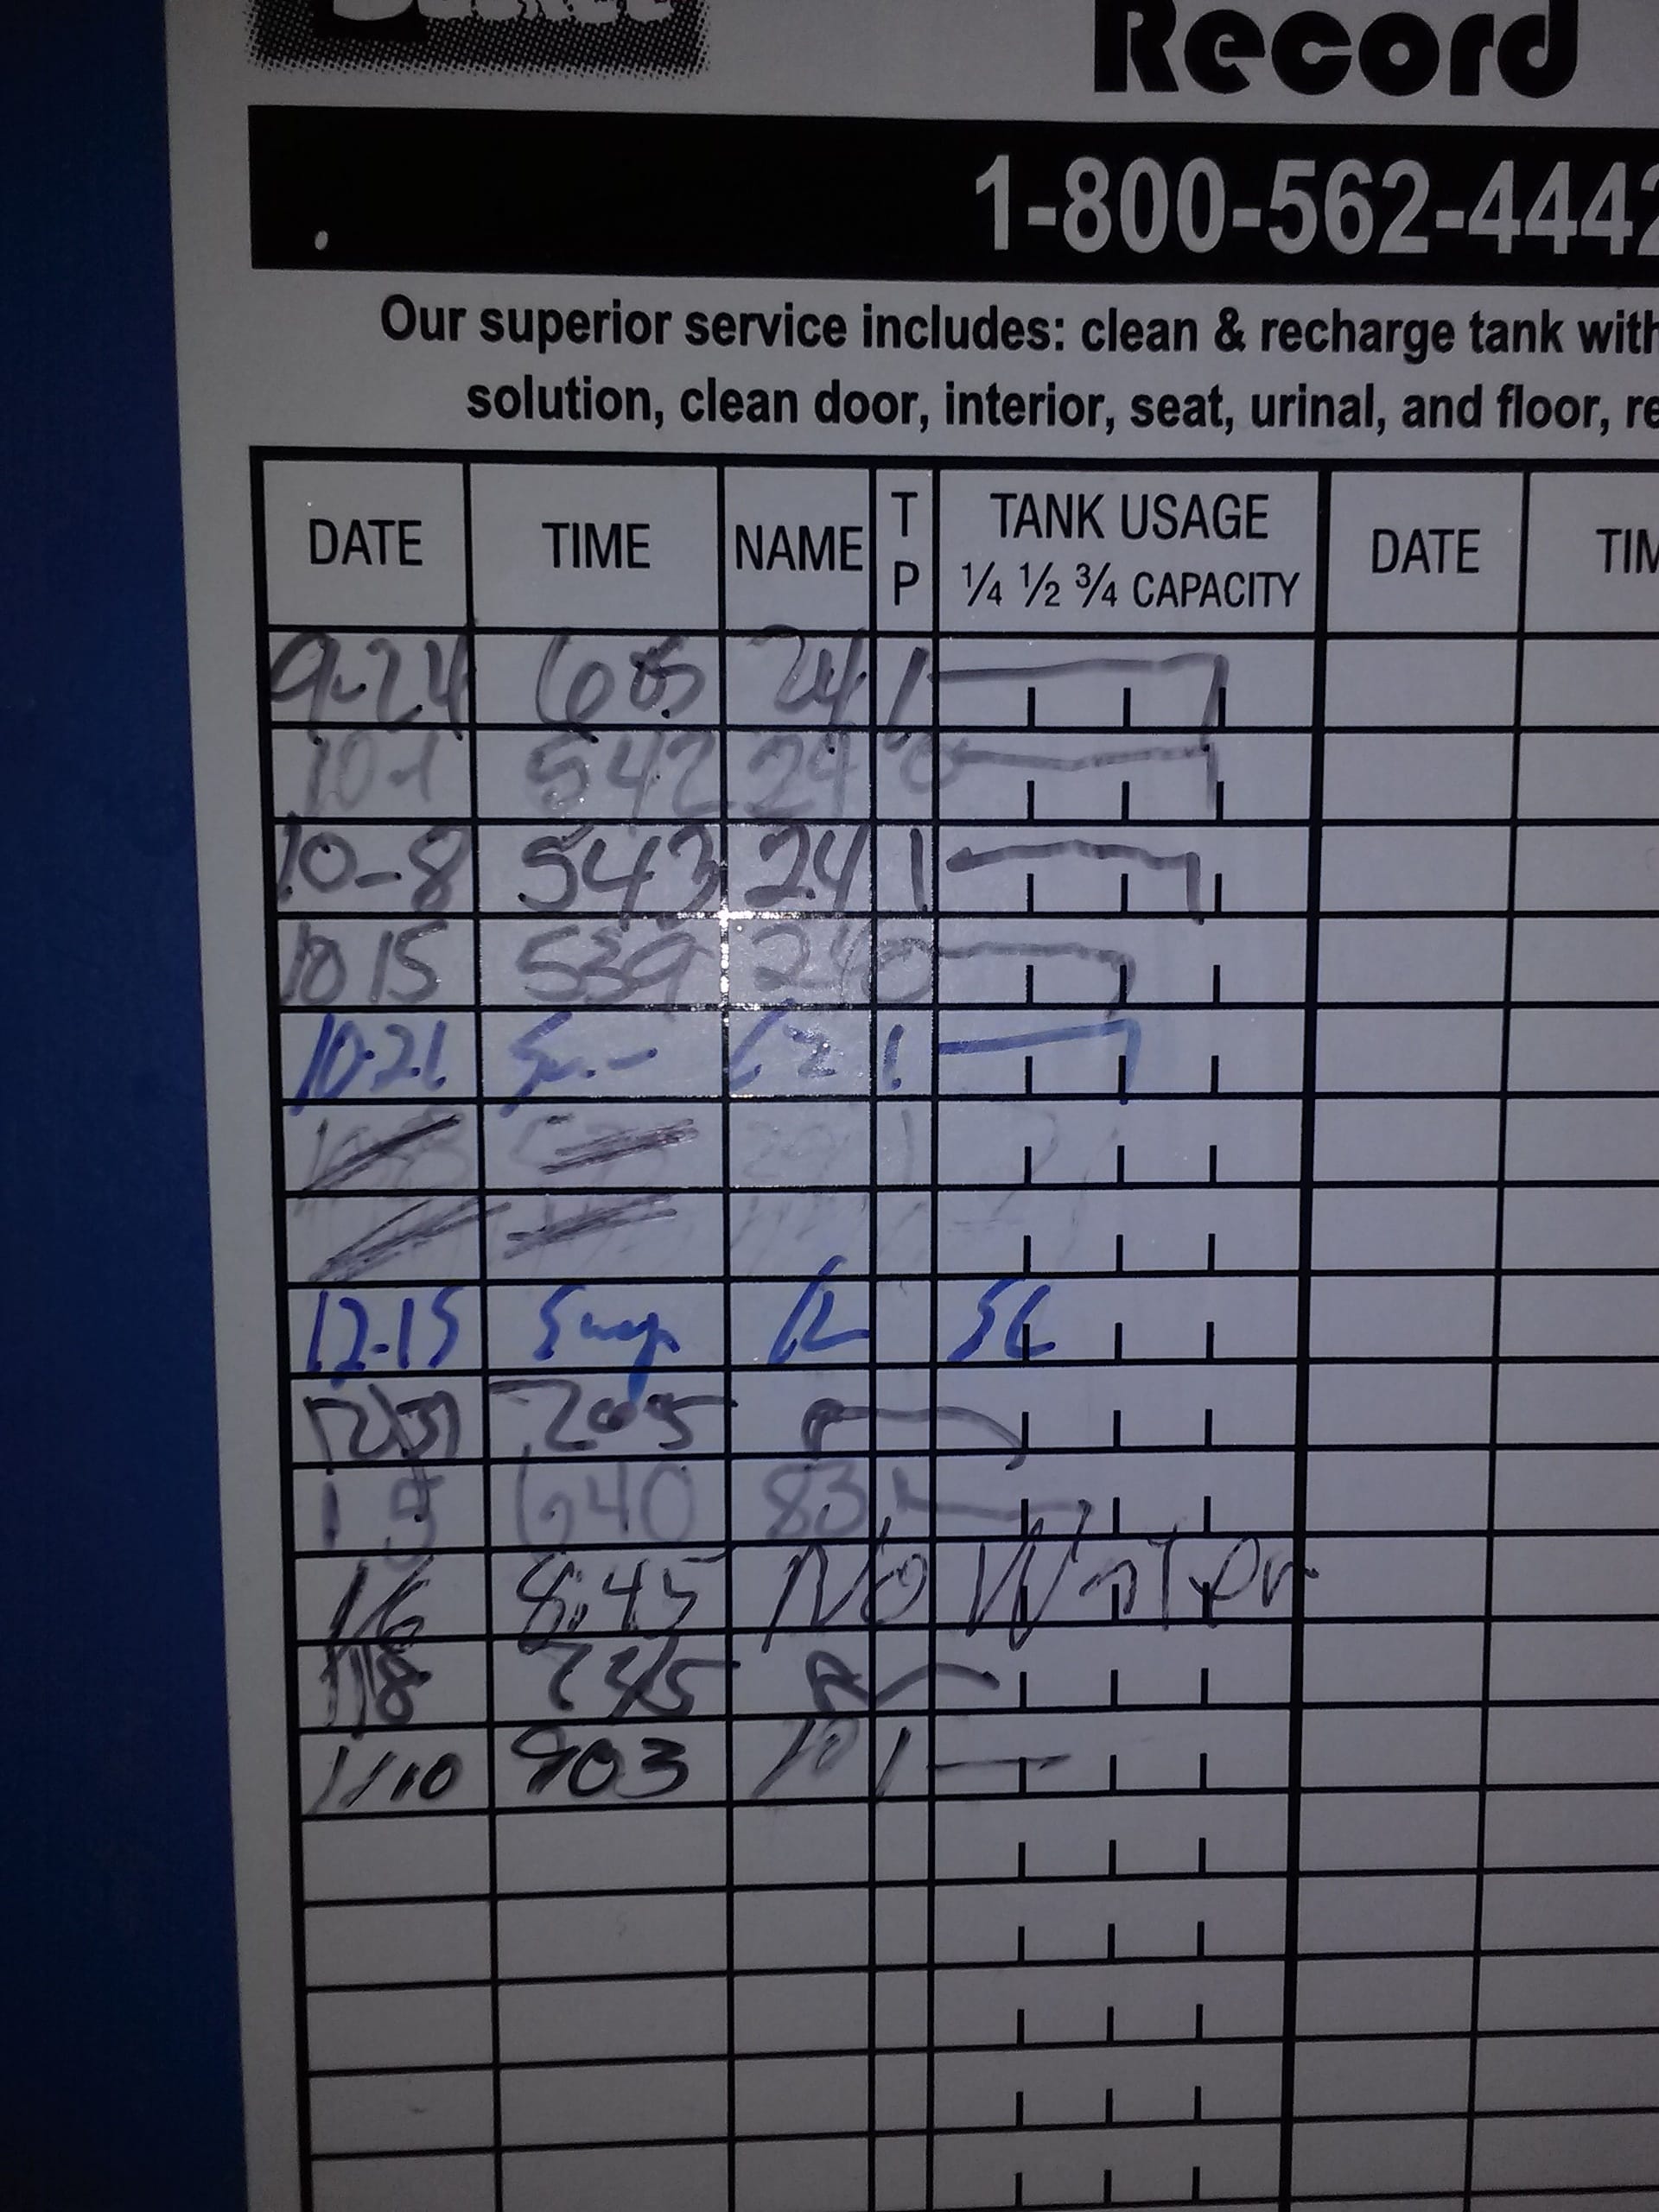 Record
1-800-562-4442
Our superior service includes: clean & recharge tank with
solution, clean door, interior, seat, urinal, and floor, re
DATE TIME NAME TP TANK USAGE DATE TIM
¼ ½ ¾ CAPACITY
9-24 605 24 1
10-1 542 24 0
10-8 543 24 1
10 15 539 24 0
10-21
12-15
12/31 705
1 5 640 83
1/6 8:45 No Water
1/8 745
1/10 903 101 1